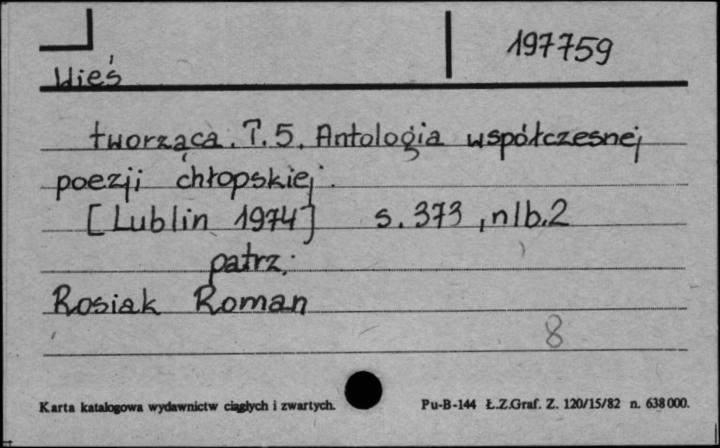 197759
Wieś
tworząca. T. 5. Antologia współczesnej
poezji chłopskiej.
[Lublin 1974] s. 373, nlb. 2
patrz:
Rosiak Roman
8
Karta katalogowa wydawnictw ciągłych i zwartych. Pu-B-144 Ł.Z.Graf. Z. 120/15/82 n. 638000.